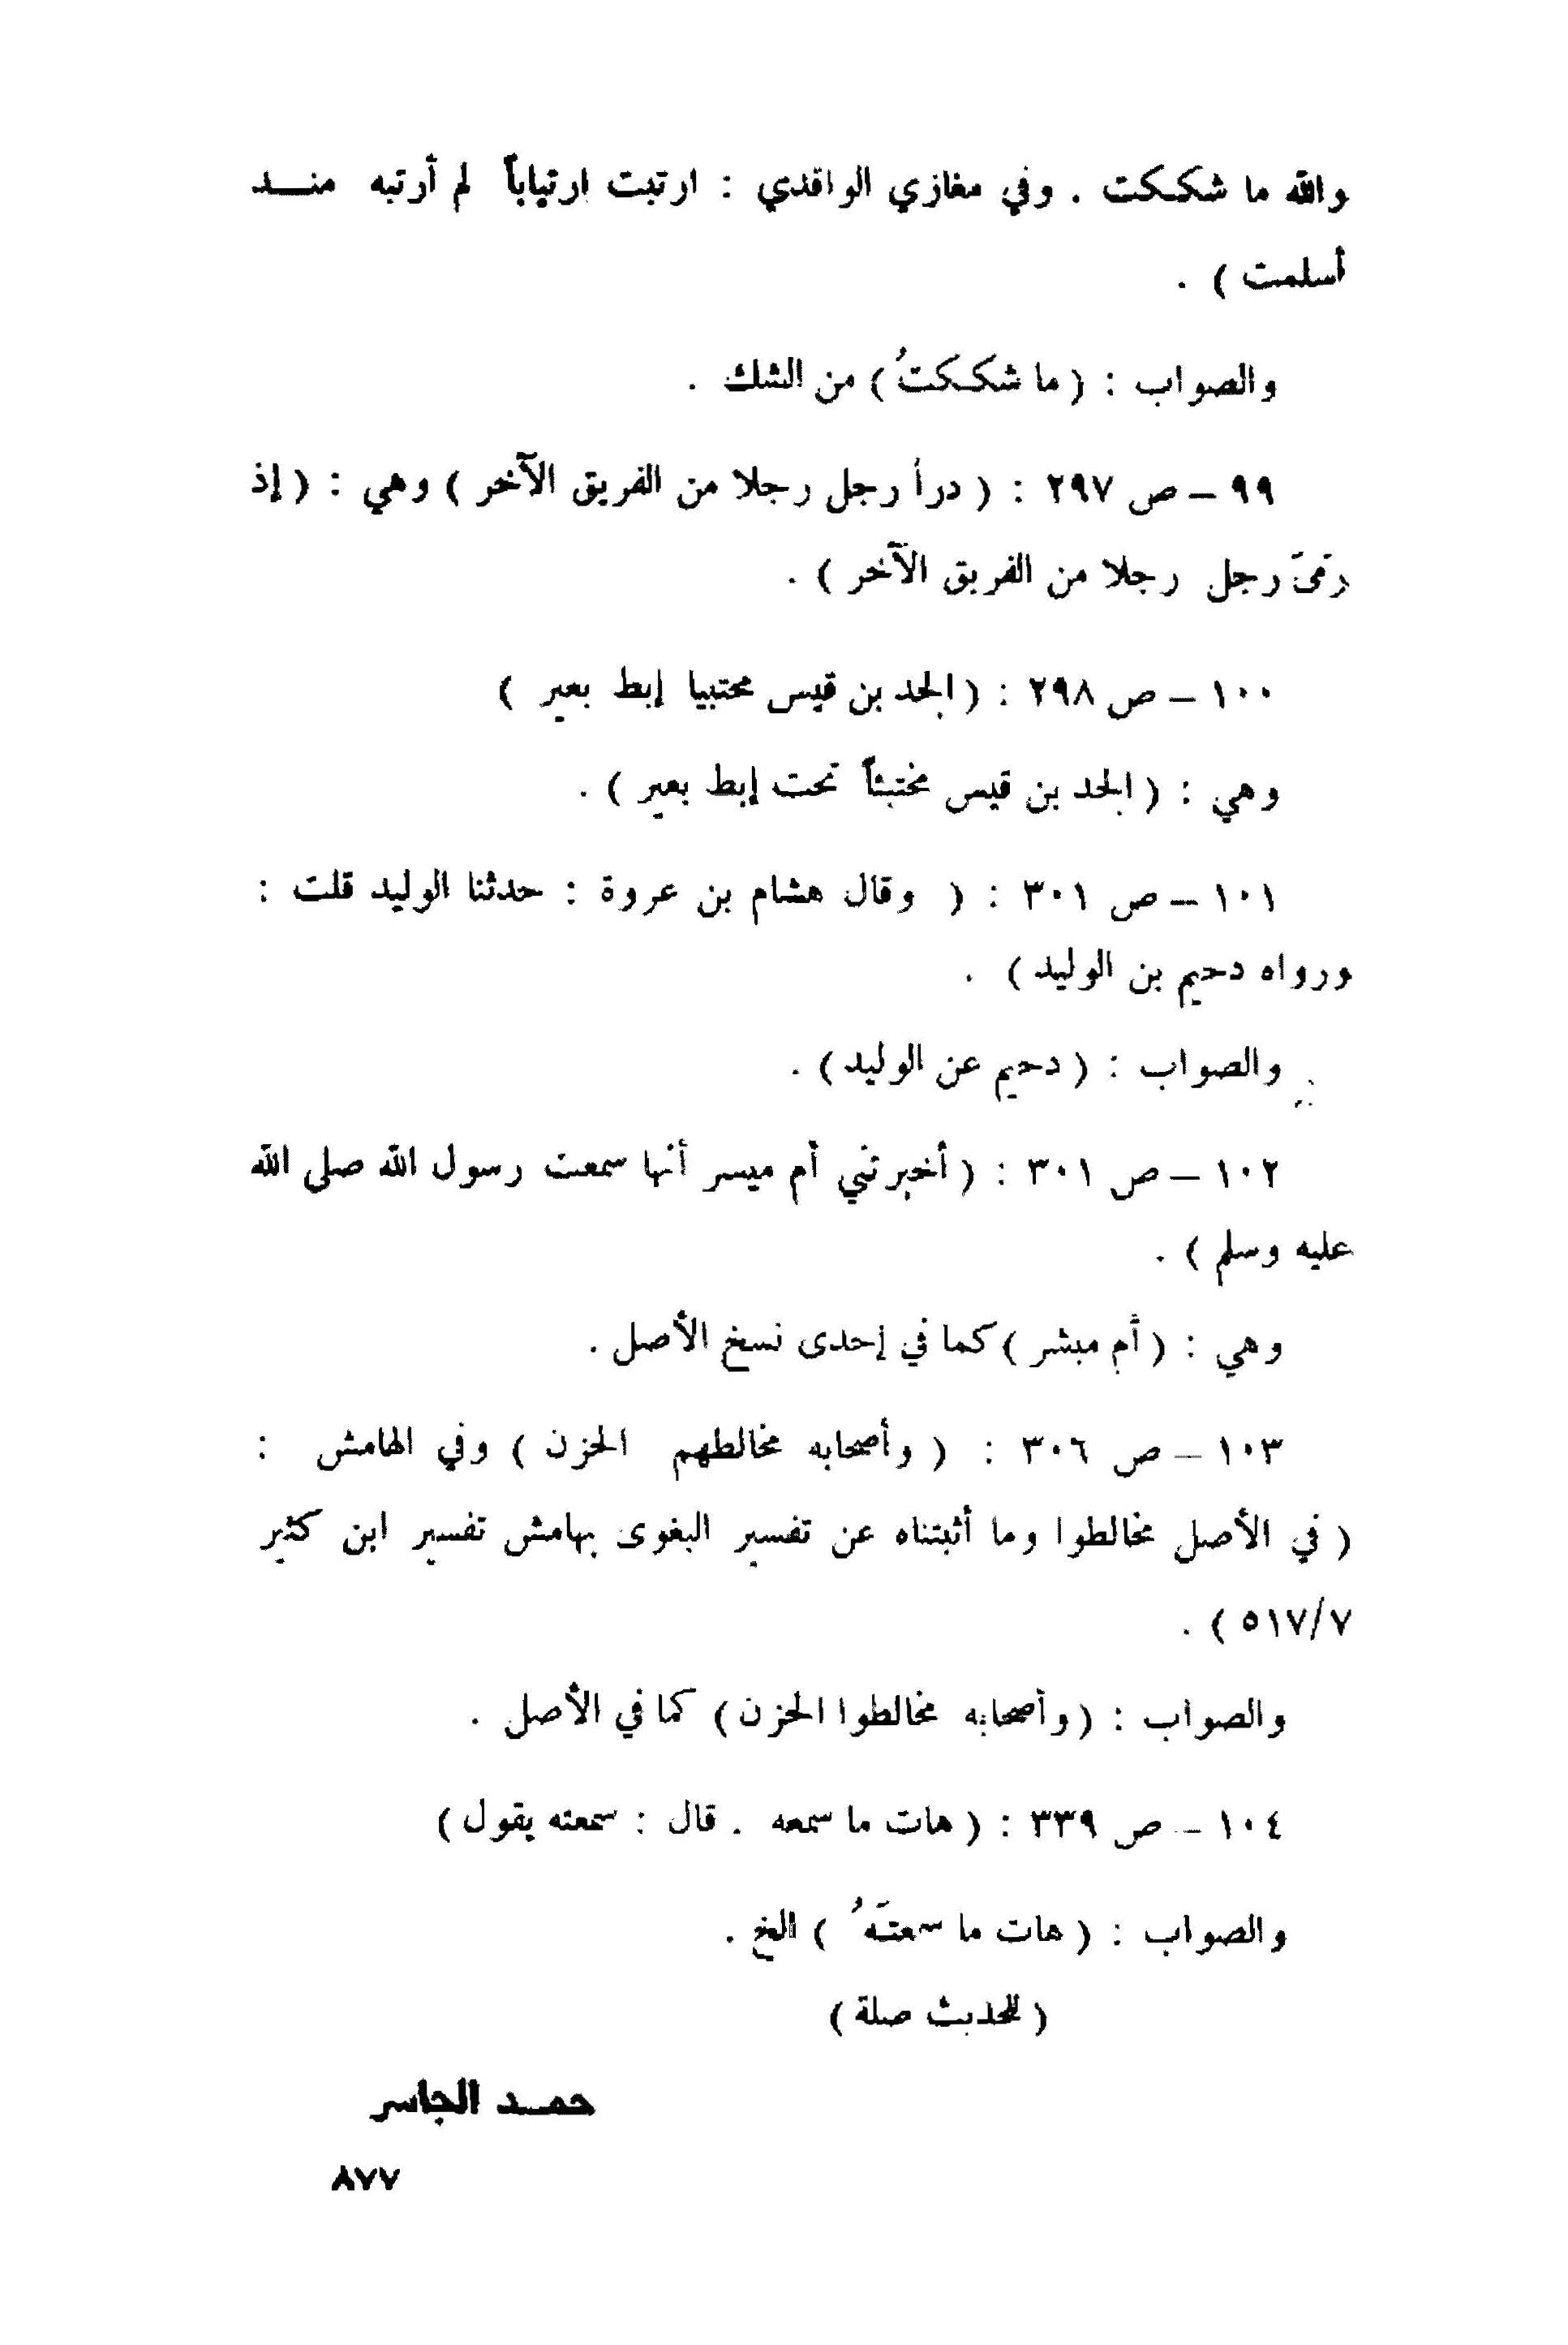 والله ما شككت . وفي مغازي الواقدي : ارتبت ارتياباً لم أرتبه منـــد
أسلمت ) .
والصواب : ( ما شككتُ ) من الشك .
٩٩ – ص ٢٩٧ : ( درأ رجل رجلا من الفريق الآخر ) وهي : ( إذ
رَمىَ رجل رجلا من الفريق الآخر ) .
١٠٠ – ص ٢٩٨ : ( الجد بن قيس محتبيا إبط بعير )
وهي : ( الجد بن قيس مختبئاً تحت إبط بعير ) .
١٠١ – ص ٣٠١ : ( وقال هشام بن عروة : حدثنا الوليد قلت :
ورواه دحيم بن الوليد ) .
والصواب : ( دحيم عن الوليد ) .
١٠٢ – ص ٣٠١ : ( أخبرتني أم ميسر أنها سمعت رسول الله صلى الله
عليه وسلم ) .
وهي : ( أم مبشر ) كما في إحدى نسخ الأصل .
١٠٣ – ص ٣٠٦ : ( وأصحابه مخالطهم الحزن ) وفي الهامش :
( في الأصل مخالطوا وما أثبتناه عن تفسير البغوى بهامش تفسير ابن كثير
٥١٧/٧ ) .
والصواب : ( وأصحابه مخالطوا الحزن ) كما في الأصل .
١٠٤ – ص ٣٣٩ : ( هات ما سمعه . قال : سمعته يقول )
والصواب : ( هات ما سمعتَهُ ) الخ .
( للحديث صلة )
حمـــد الجاسر
٨٧٧